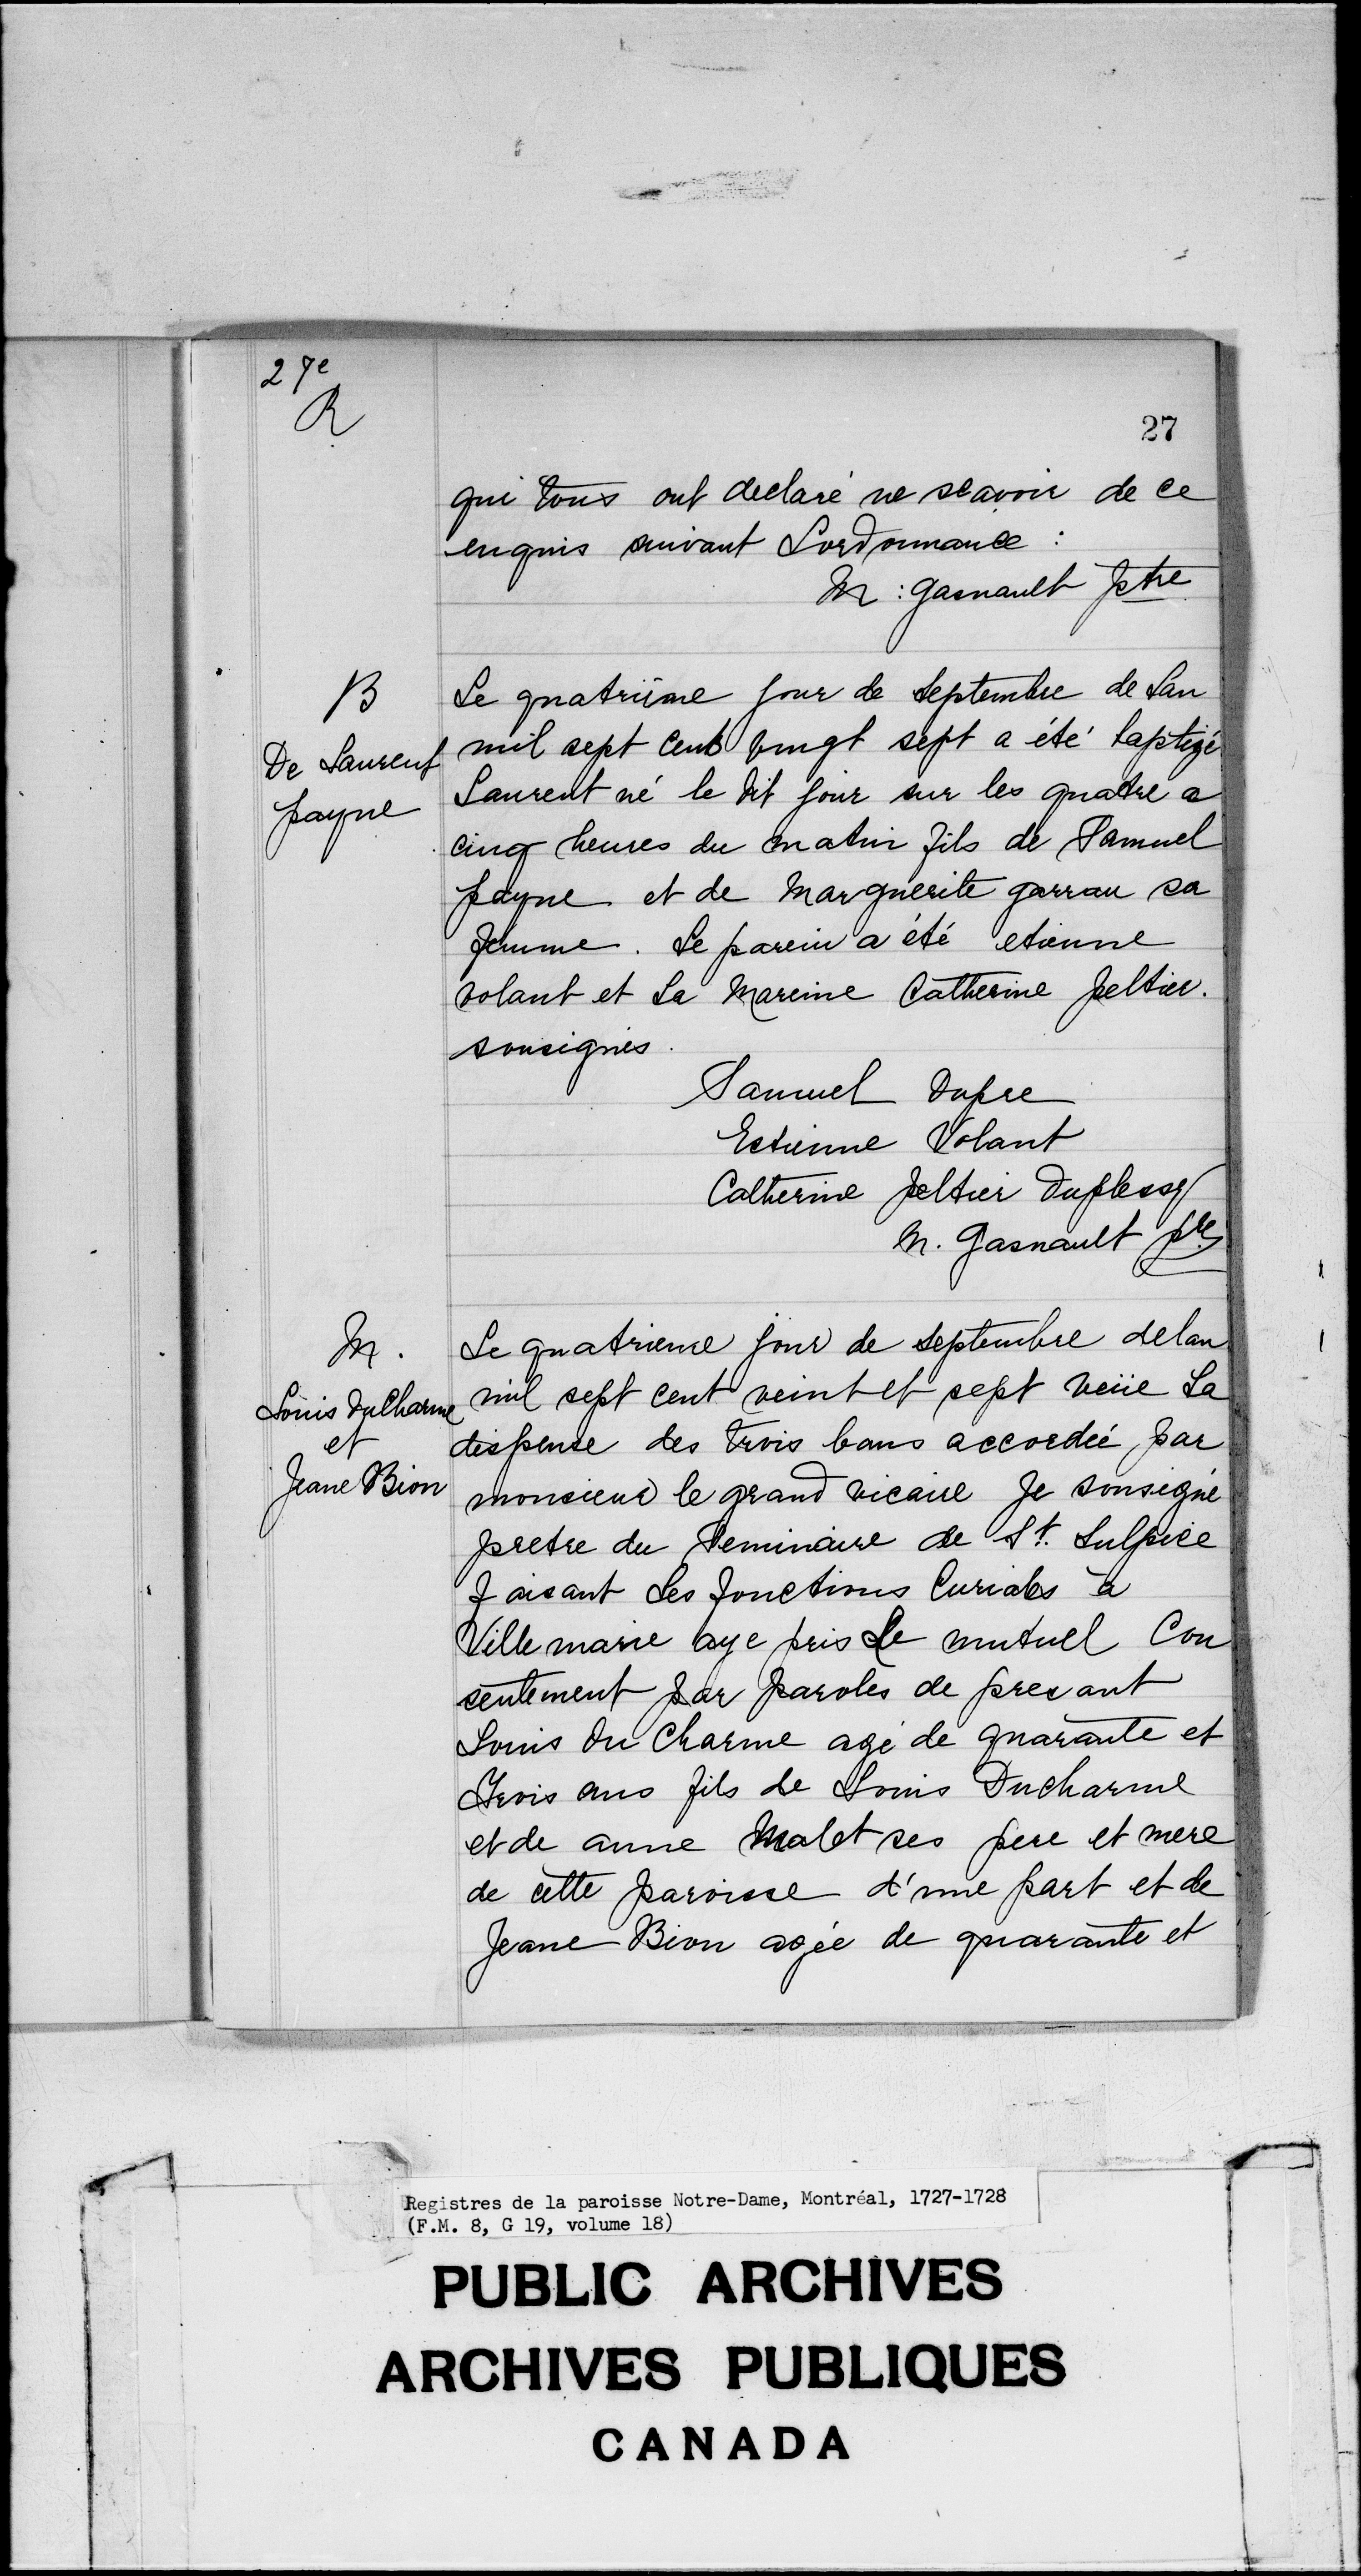 27e
R
27
qui tous ont declaré ne scavoir de ce
enquis suivant Lordonnance :
M : gasnault ptre
B
De Laurent
payne
Le quatriime jour de septembre de Lan
mil sept cent vingt sept a été baptizé
Laurent né le dit jour sur les quatre a
cinq heures du matin fils de Samuel
payne et de Marguerite garrau sa
femme. Le parein a été etienne
volant et La Mareine Catherine peltier.
sousignés.
Samuel Dupre
Estienne Volant
Catherine peltier Duplessy
M. Gasnault ptre
M.
Louis duCharme
et
Jeane Bion
Le quatrieme jour de septembre delan
mil sept cent veint et sept veüe La
dispense des trois bans accordée par
monsieur le grand vicaire Je sousigné
pretre du Seminaire de St. Sulpice
faisant Les fonctions Curiales à
Ville marie aye pris Le mutuel Con
sentement par paroles de presant
Louis du Charme agé de quarante et
Trois ans fils de Louis Ducharme
et de anne Malet ses pere et mere
de cette paroisse d'une part et de
Jeane Bion agée de quarante et
Registres de la paroisse Notre-Dame, Montréal, 1727-1728
(F.M. 8, G 19, volume 18)
PUBLIC ARCHIVES
ARCHIVES PUBLIQUES
CANADA